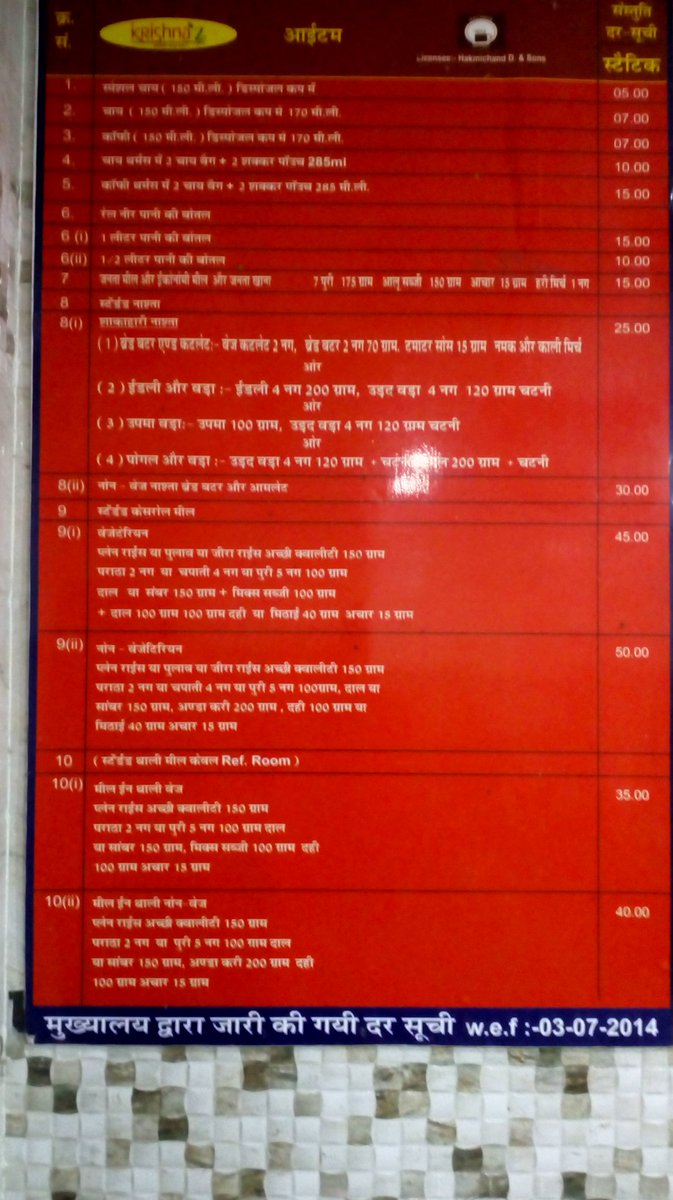 क्र. सं.
Krishna
आईटम
Licensee:- Hakmichand D. & Sons
संस्तुति दर-सूची
स्टैटिक
1. स्पेशल चाय ( 150 मी.ली. ) डिस्पोजल कप में 05.00
2. चाय ( 150 मी.ली. ) डिस्पोजल कप में 170 मी.ली. 07.00
3. कॉफी ( 150 मी.ली. ) डिस्पोजल कप में 170 मी.ली. 07.00
4. चाय थर्मस में 2 चाय बैग + 2 शक्कर पॉउच 285ml 10.00
5. कॉफी थर्मस में 2 चाय बैग + 2 शक्कर पॉउच 285 मी.ली. 15.00
6. रेल नीर पानी की बोतल
6 (i) 1 लीटर पानी की बोतल 15.00
6(ii) 1/2 लीटर पानी की बोतल 10.00
7 जनता मील और ईकोनॉमी मील और जनता खाना 7 पुरी 175 ग्राम आलू सब्जी 150 ग्राम आचार 15 ग्राम हरी मिर्च 1 नग 15.00
8 स्टेंर्डड नाश्ता
8(i) शाकाहारी नाश्ता 25.00
( 1 ) ब्रेड बटर एण्ड कटलेट:- वेज कटलेट 2 नग, ब्रेड बटर 2 नग 70 ग्राम. टमाटर सॉस 15 ग्राम नमक और काली मिर्च
ओर
( 2 ) ईडली और वड़ा :- ईडली 4 नग 200 ग्राम, उड़द वड़ा 4 नग 120 ग्राम चटनी
ओर
( 3 ) उपमा वड़ा:- उपमा 100 ग्राम, उड़द वड़ा 4 नग 120 ग्राम चटनी
ओर
( 4 ) पोंगल और वड़ा :- उड़द वड़ा 4 नग 120 ग्राम + 200 ग्राम + चटनी
8(ii) नॉन - वेज नाश्ता ब्रेड बटर और आमलेट 30.00
9 स्टेंर्डड केसरोल मील
9(i) वेजेटेरियन 45.00
प्लेन राईस या पुलाव या जीरा राईस अच्छी क्वालीटी 150 ग्राम
पराठा 2 नग या चपाती 4 नग या पुरी 5 नग 100 ग्राम
दाल या सांबर 150 ग्राम + मिक्स सब्जी 100 ग्राम
+ दाल 100 ग्राम 100 ग्राम दही या मिठाई 40 ग्राम अचार 15 ग्राम
9(ii) नॉन - वेजेटिरियन 50.00
प्लेन राईस या पुलाव या जीरा राईस अच्छी क्वालीटी 150 ग्राम
पराठा 2 नग या चपाती 4 नग या पुरी 5 नग 100ग्राम, दाल या
सांबर 150 ग्राम, अण्डा करी 200 ग्राम , दही 100 ग्राम या
मिठाई 40 ग्राम अचार 15 ग्राम
10 ( स्टेंर्डड थाली मील केवल Ref. Room )
10(i) मील ईन थाली वेज 35.00
प्लेन राईस अच्छी क्वालीटी 150 ग्राम
पराठा 2 नग या पुरी 5 नग 100 ग्राम दाल
या सांबर 150 ग्राम, मिक्स सब्जी 100 ग्राम दही
100 ग्राम अचार 15 ग्राम
10(ii) मील ईन थाली नॉन-वेज 40.00
प्लेन राईस अच्छी क्वालीटी 150 ग्राम
पराठा 2 नग या पुरी 5 नग 100 ग्राम दाल
या सांबर 150 ग्राम, अण्डा करी 200 ग्राम दही
100 ग्राम अचार 15 ग्राम
मुख्यालय द्वारा जारी की गयी दर सूची w.e.f :-03-07-2014